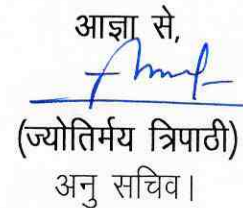 आज्ञा से,
(ज्योतिर्मय त्रिपाठी)
अनु सचिव।